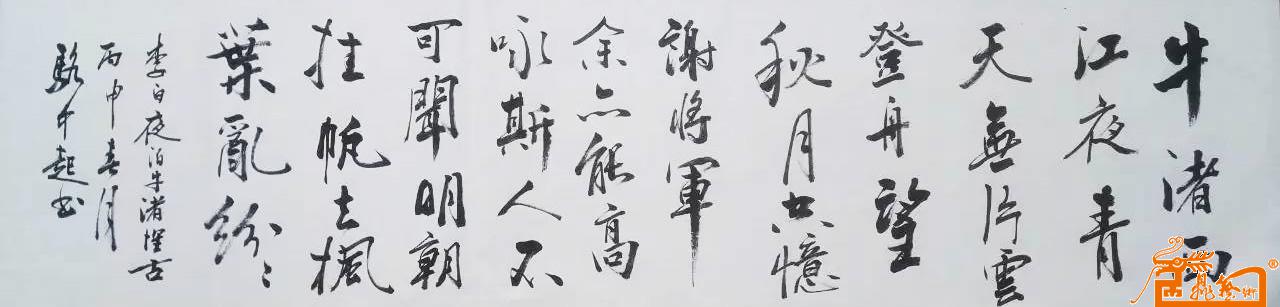 牛渚西
江夜青
天無片雲
登舟望
秋月空憶
謝將軍
余亦能高
詠斯人不
可聞明朝
挂帆去楓
葉亂紛紛
李白夜泊牛渚懷古
丙申春月
駱中起书